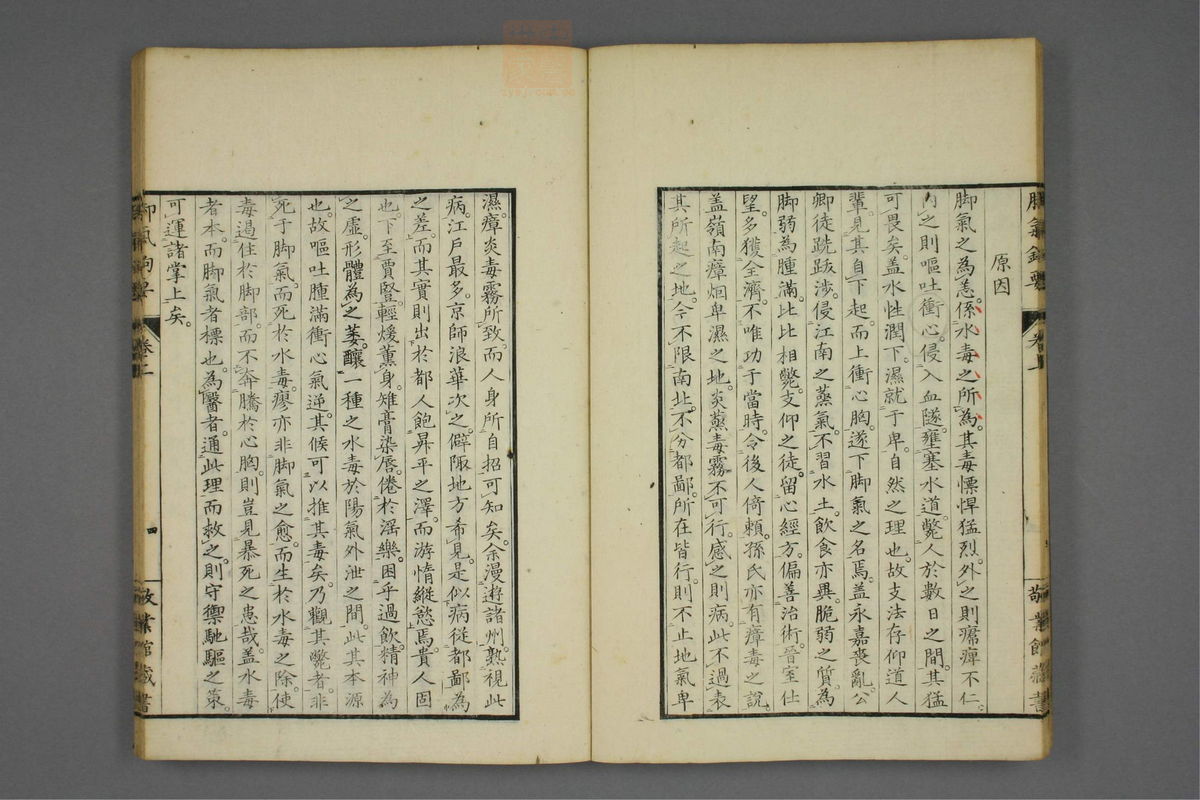 脚氣鉤要 卷上 敬業館藏書
原因
脚氣之為恙。係水毒之所為。其毒慓悍猛烈。外之則痛痺不仁
內之則嘔吐衝心。侵入血隧。壅塞水道。斃人於數日之間。其猛
可畏矣。盖水性潤下。濕就于卑。自然之理也。故支法存仰道人
輩。見其自下起。而上衝心胸。遂下脚氣之名焉。盖永嘉喪亂。公
卿徒跣跋涉。侵江南之蒸氣。不習水土。飲食亦異。脆弱之質。為
脚弱為腫滿。比比相斃。支仰之徒。留心經方。偏善治術。晉室仕
望。多獲全濟。不唯功于當時。令後人倚賴。孫氏亦有瘴毒之說。
盖嶺南瘴烟卑濕之地。炎蒸毒霧。不可行。感之則病。此不過表
其所起之地。今不限南北。不分都鄙。所在皆行。則不止地氣卑
濕。瘴炎毒霧所致。而人身所自招可知矣。余漫遊諸州。熟視此
病。江戶最多。京師浪華次之。僻陬地方希見。是似病從都鄙為
之差。而其實則出於都人飽昇平之澤。而游惰縱慾焉。貴人固
也。下至賈豎。輕煖薰身。雉膏染唇。倦於淫樂。困乎過飲。精神為
之虛。形體為之萎。釀一種之水毒於陽氣外泄之間。此其本源
也。故嘔吐腫滿衝心氣逆。其候可以推其毒矣。乃觀其斃者。非
死于脚氣。而死於水毒。瘳亦非脚氣之愈。而生於水毒之除。使
毒遏住於脚部。而不奔騰於心胸。則豈見暴死之患哉。盖水毒
者本而脚氣者標也。為醫者。通此理而救之。則守禦馳驅之策。
可運諸掌上矣。
脚氣鉤要 卷上 四 敬業館藏書